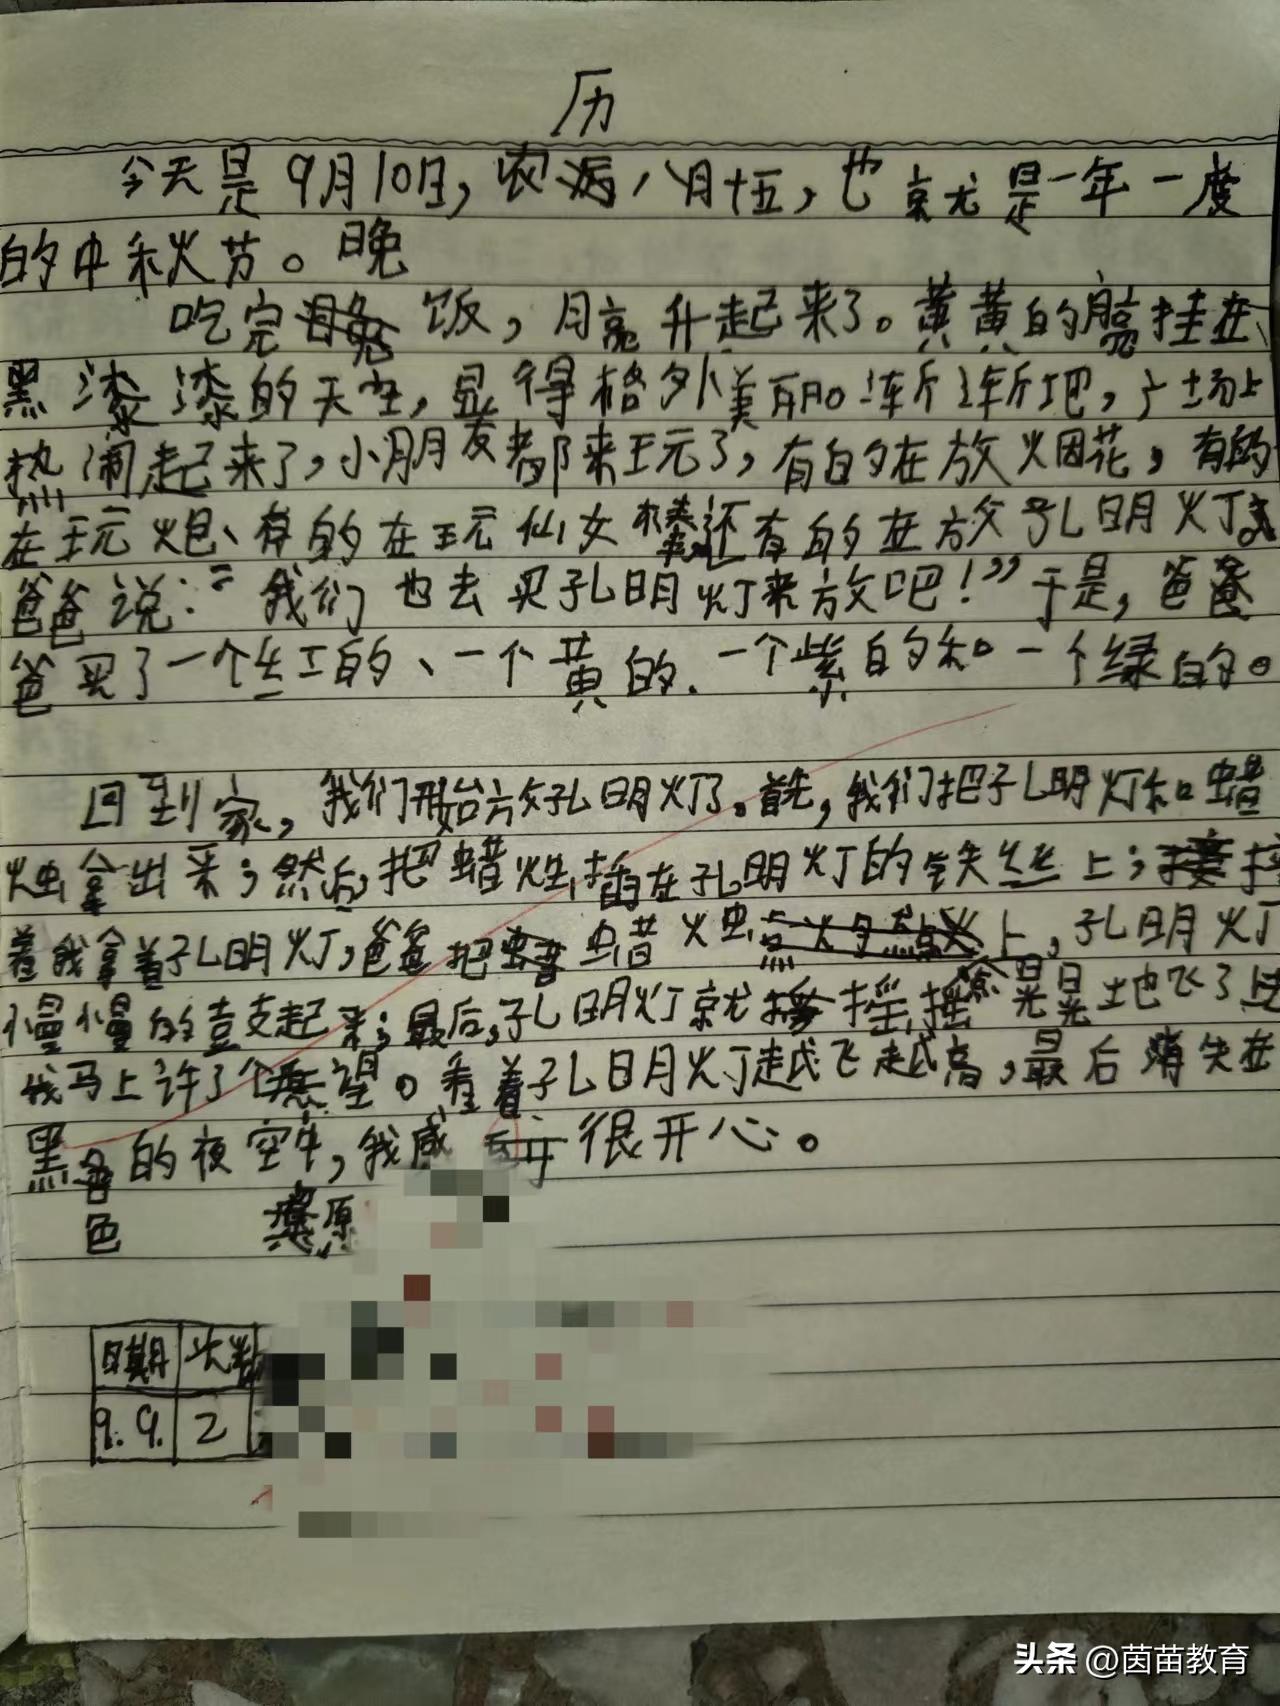 历
今天是9月10日，农历八月十五，也就是一年一度
的中秋节。晚
吃完晚饭，月亮升起来了。黄黄的月亮挂在
黑漆漆的天空，显得格外美丽。渐渐地，广场上
热闹起来了，小朋友都来玩了，有的在放烟花，有的
在玩炮、有的在玩仙女棒还有的在放孔明灯。
爸爸说：“我们也去买孔明灯来放吧！”于是，爸爸
爸买了一个红的、一个黄的、一个紫的和一个绿的。
回到家，我们开始放孔明灯了。首先，我们把孔明灯和蜡
烛拿出来；然后，把蜡烛插在孔明灯的铁丝上；接
着我拿着孔明灯，爸爸把蜡烛点火上，孔明灯
慢慢的鼓起来；最后，孔明灯就摇摇晃晃地飞了上
我马上许了个愿望。看着孔明灯越飞越高，最后消失在
黑色的夜空中，我感 很开心。
色 愿
日期 次数
9.9. 2
头条 @茵苗教育